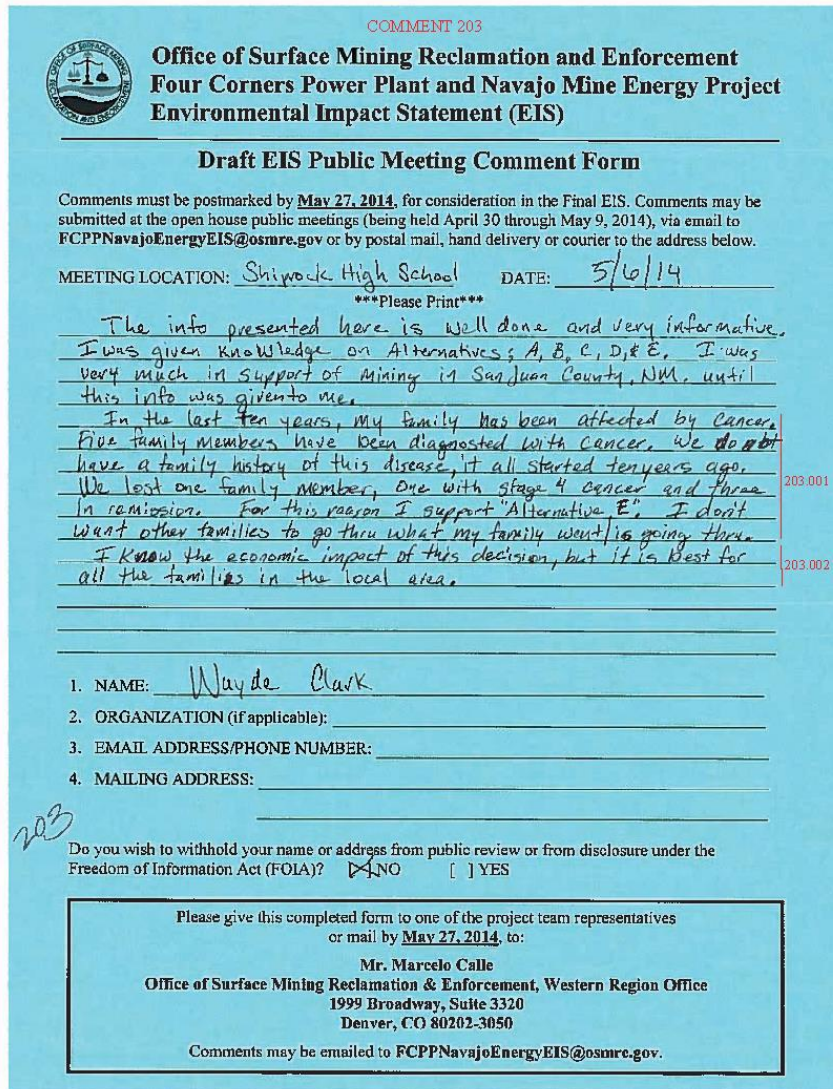 COMMENT 203
Office of Surface Mining Reclamation and Enforcement
Four Corners Power Plant and Navajo Mine Energy Project
Environmental Impact Statement (EIS)
Draft EIS Public Meeting Comment Form
Comments must be postmarked by May 27, 2014, for consideration in the Final EIS. Comments may be
submitted at the open house public meetings (being held April 30 through May 9, 2014), via email to
FCPPNavajoEnergyEIS@osmre.gov or by postal mail, hand delivery or courier to the address below.
MEETING LOCATION: Shiprock High School DATE: 5/6/14
***Please Print***
The info presented here is well done and very informative.
I was given knowledge on Alternatives; A, B, C, D, & E. I was
very much in support of mining in San Juan County, NM. until
this info was given to me.
In the last ten years, my family has been affected by cancer.
Five family members have been diagnosed with cancer. We do not
have a family history of this disease, it all started ten years ago.
203.001
We lost one family member, one with stage 4 cancer and three
in remission. For this reason I support "Alternative E". I don't
want other families to go thru what my family went/is going thru.
I know the economic impact of this decision, but it is best for
203.002
all the families in the local area.
1. NAME: Wayde Clark
2. ORGANIZATION (if applicable):
3. EMAIL ADDRESS/PHONE NUMBER:
4. MAILING ADDRESS:
203
Do you wish to withhold your name or address from public review or from disclosure under the
Freedom of Information Act (FOIA)? [X] NO [ ] YES
Please give this completed form to one of the project team representatives
or mail by May 27, 2014, to:
Mr. Marcelo Calle
Office of Surface Mining Reclamation & Enforcement, Western Region Office
1999 Broadway, Suite 3320
Denver, CO 80202-3050
Comments may be emailed to FCPPNavajoEnergyEIS@osmre.gov.